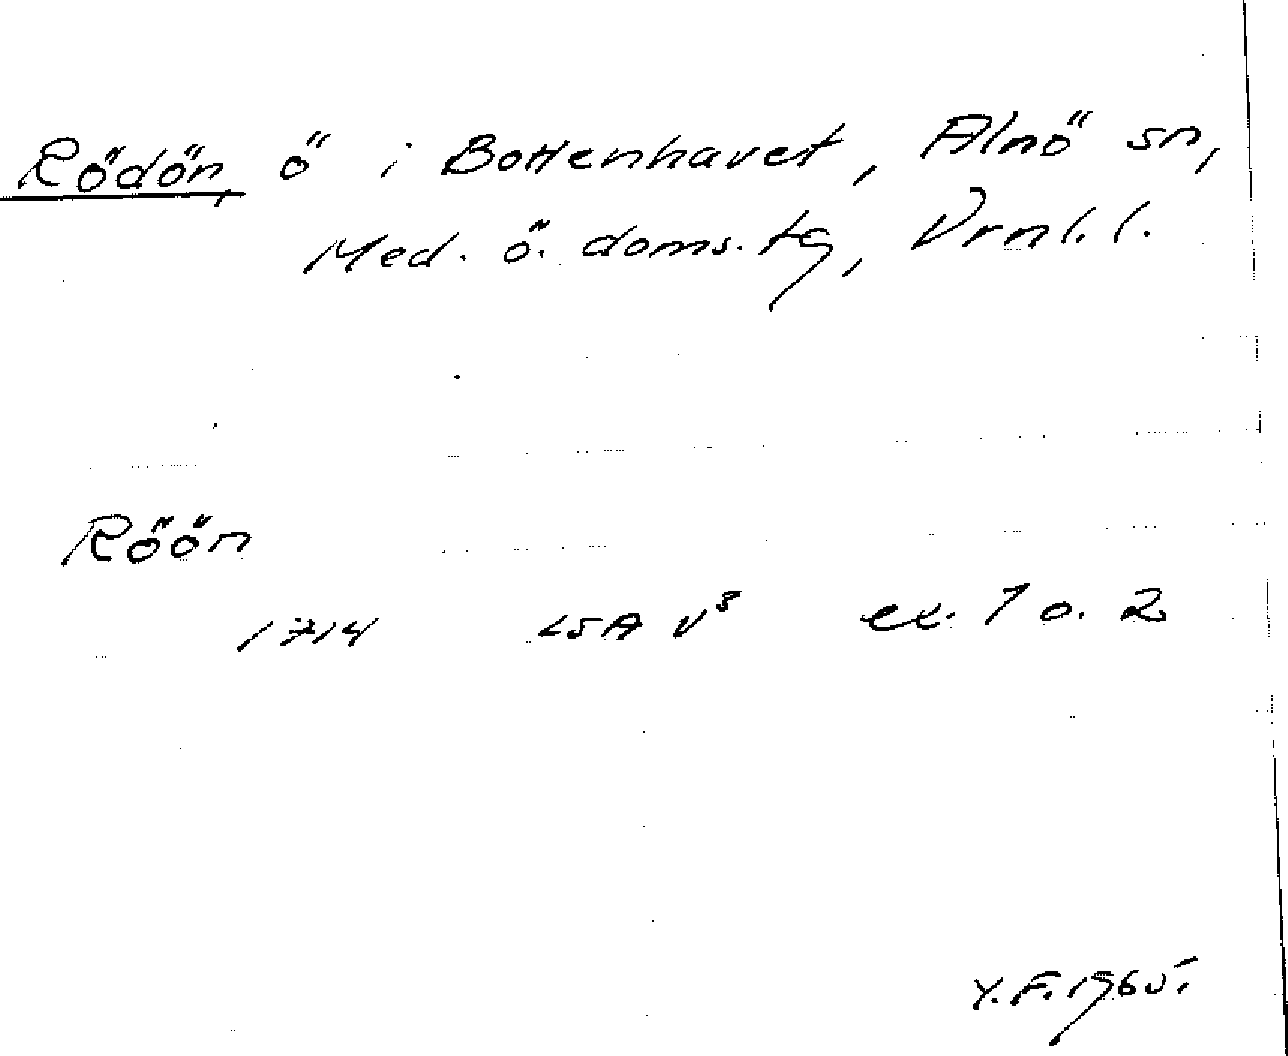 Rödön, ö i Bottenhavet, Alnö sn,
Med. ö. doms. tg, Vrnl. l.
Röön
1714 LSA V³ ex. 1 o. 2
Y.F. 1965.